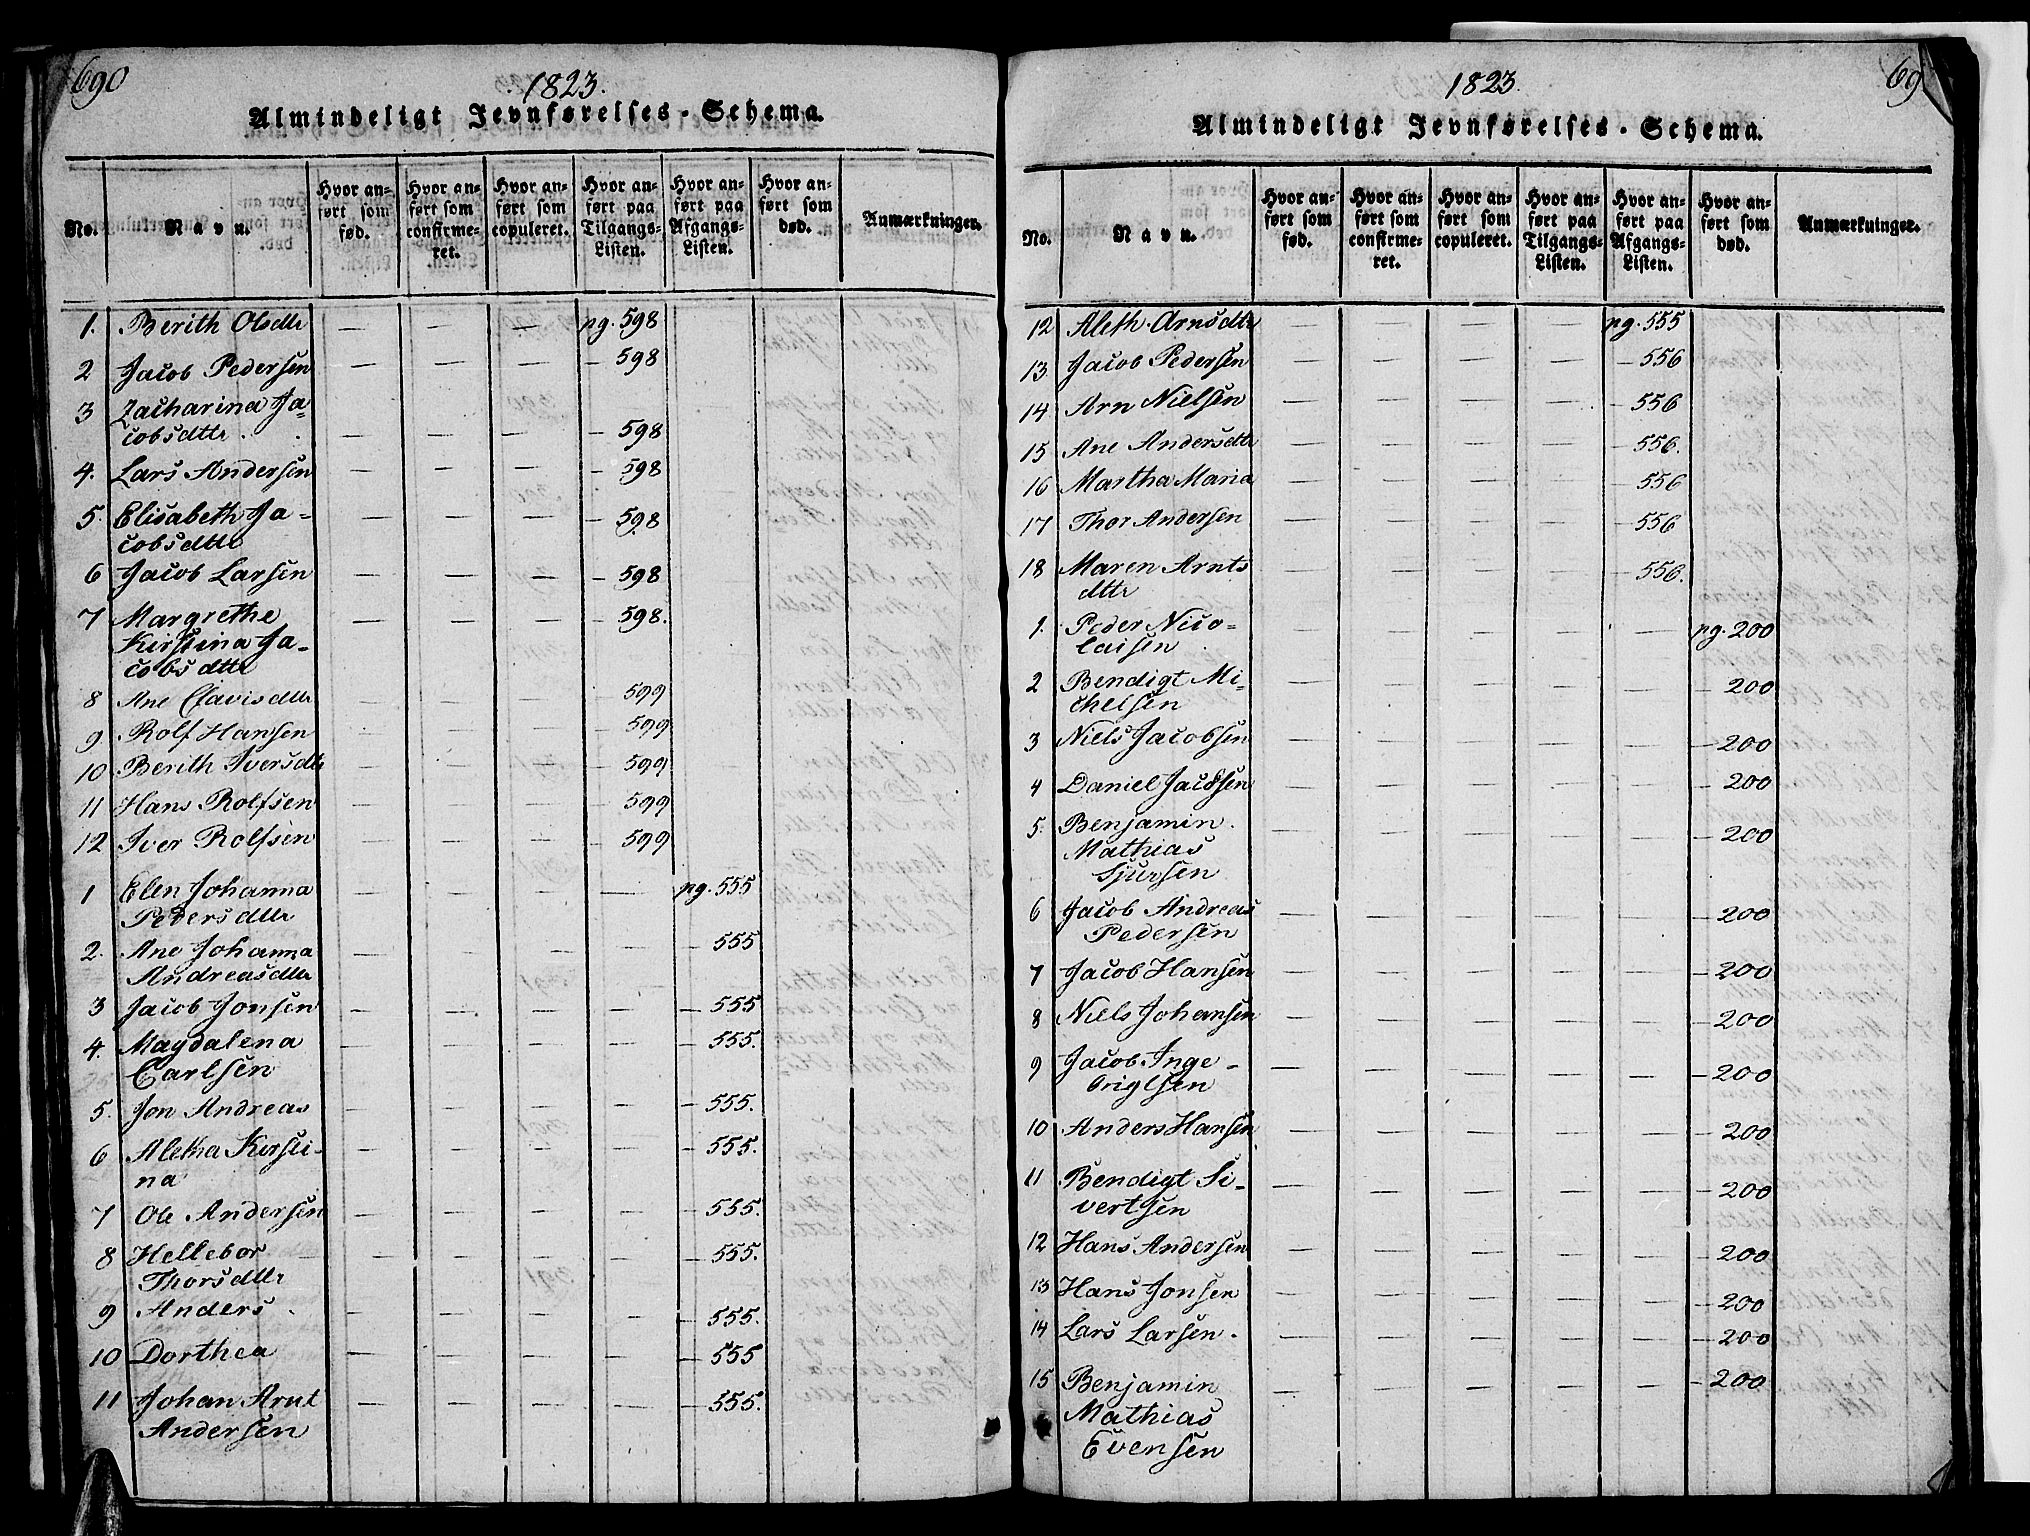 690
1823.
Almindeligt Jevnførelses-Schema.
No.
Navn.
Hvor an-
ført som
fød.
Hvor an-
ført som
confirme-
ret.
Hvor an-
ført som
copuleret.
Hvor an-
ført paa
Tilgangs-
Listen.
Hvor an-
ført paa
Afgangs-
Listen.
Hvor an-
ført som
død.
Anmærkninger.
1. Berith Olsdtr — — — pg. 598
2 Jacob Pedersen — — — — 598
3 Zacharina Ja-
cobsdttr. — — — — 598
4. Lars Andersen — — — — 598
5. Elisabeth Ja- — — — — 598
cobsdttr
6 Jacob Larsen — — — — 598
7 Margrethe — — — — 598.
Kirstina Ja-
cobsdttr
8 Ane Clavisdttr — — — — 599
9 Rolf Hansen — — — — 599
10 Berith Iversdtr — — — — 599
11 Hans Rolfsen — — — — 599
12 Iver Rolfsen — — — — 599
1 Elen Johanna — — — — pg. 555
Pedersdttr
2. Ane Johanna — — — — — 555
Andreasdttr
3 Jacob Jonsen — — — — — 555
4. Magdalena — — — — — 555.
Carlsen
5. Jon Andreas — — — — — 555.
6 Aletha Kirsti- — — — — — 555.
na
7 Ole Andersen — — — — — 555.
8 Hellebor — — — — — 555.
Thorsdttr
9 Anders — — — — — 555.
10 Dorthea — — — — — 555
11 Johan Arnt — — — — — 555.
Andersen
69
1823.
Almindeligt Jevnførelses-Schema.
No.
Navn.
Hvor an-
ført som
fød.
Hvor an-
ført som
confirme-
ret.
Hvor an-
ført som
copuleret.
Hvor an-
ført paa
Tilgangs-
Listen.
Hvor an-
ført paa
Afgangs-
Listen.
Hvor an-
ført som
død.
Anmærkninger.
12 Aleth Arnsdttr — — — — pg. 555
13. Jacob Pedersen — — — — — 556
14 Arn Nielsen — — — — — 556
15 Ane Andersdttr — — — — — 556.
16 Martha Maria — — — — — 556
17 Thor Andersen — — — — — 556
18 Maren Arnts — — — — — 556.
dttr
1. Peder Nico- — — — — — pg. 200
laisen
2 Bendigt Mi- — — — — — — 200
chelsen
3 Niels Jacobsen — — — — — — 200
4 Daniel Jacobsen — — — — — — 200
5. Benjamin — — — — — — 200
Mathias
Sjursen
6 Jacob Andreas — — — — — — 200
Pedersen
7 Jacob Hansen — — — — — — 200
8 Niels Johansen — — — — — — 200
9 Jacob Inge- — — — — — — 200
brigtsen
10 Anders Hansen — — — — — — 200
11 Bendigt Si- — — — — — — 200
vertsen
12 Hans Andersen — — — — — — 200
13 Hans Jonsen — — — — — — 200
14 Lars Larsen. — — — — — — 200
15 Benjamin — — — — — — 200
Mathias
Evensen